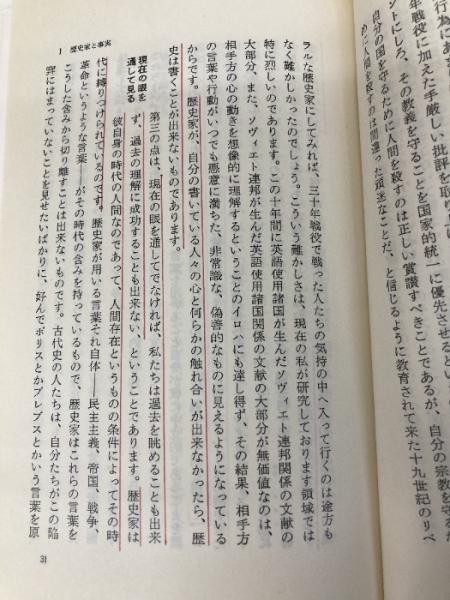 行為にあ
年戦役に加えた手厳しい批評を取り上
ントにしろ、その教義を守ることを国家的統一に優先させるとい
自分の国を守るために人間を殺すのは正しい賞讃すべきことであるが、自分の宗教を守るた
めに人間を殺すのは間違った頑迷なことだ、と信じるように教育されて来た十九世紀のリベ
ラルな歴史家にしてみれば、三十年戦役で戦った人たちの気持の中へ入って行くのは途方も
なく難かしかったのでしょう。こういう難かしさは、現在の私が研究しております領域では
特に烈しいのであります。この十年間に英語使用諸国が生んだソヴィエト連邦関係の文献の
大部分、また、ソヴィエト連邦が生んだ英語使用諸国関係の文献の大部分が無価値なのは、
相手方の心の動きを想像的に理解するということのイロハにも達し得ず、その結果、相手方
の言葉や行動がいつでも悪意に満ちた、非常識な、偽善的なものに見えるようになっている
からです。歴史家が、自分の書いている人々の心と何らかの触れ合いが出来なかったら、歴
史は書くことが出来ないものであります。
現在の眼を
通して見る
第三の点は、現在の眼を通してでなければ、私たちは過去を眺めることも出来
ず、過去の理解に成功することも出来ない、ということであります。歴史家は
彼自身の時代の人間なのであって、人間存在というものの条件によってその時
代に縛りつけられているのです。歴史家が用いる言葉それ自体——民主主義、帝国、戦争、
革命というような言葉——がその時代の含みを持っているもので、歴史家はこれらの言葉を
こうした含みから切り離すことは出来ないものです。古代史の人たちは、自分たちがこの陥
穽にはまっていないことを見せたいばかりに、好んでポリスとかプレブスとかいう言葉を原
I 歴史家と事実
31